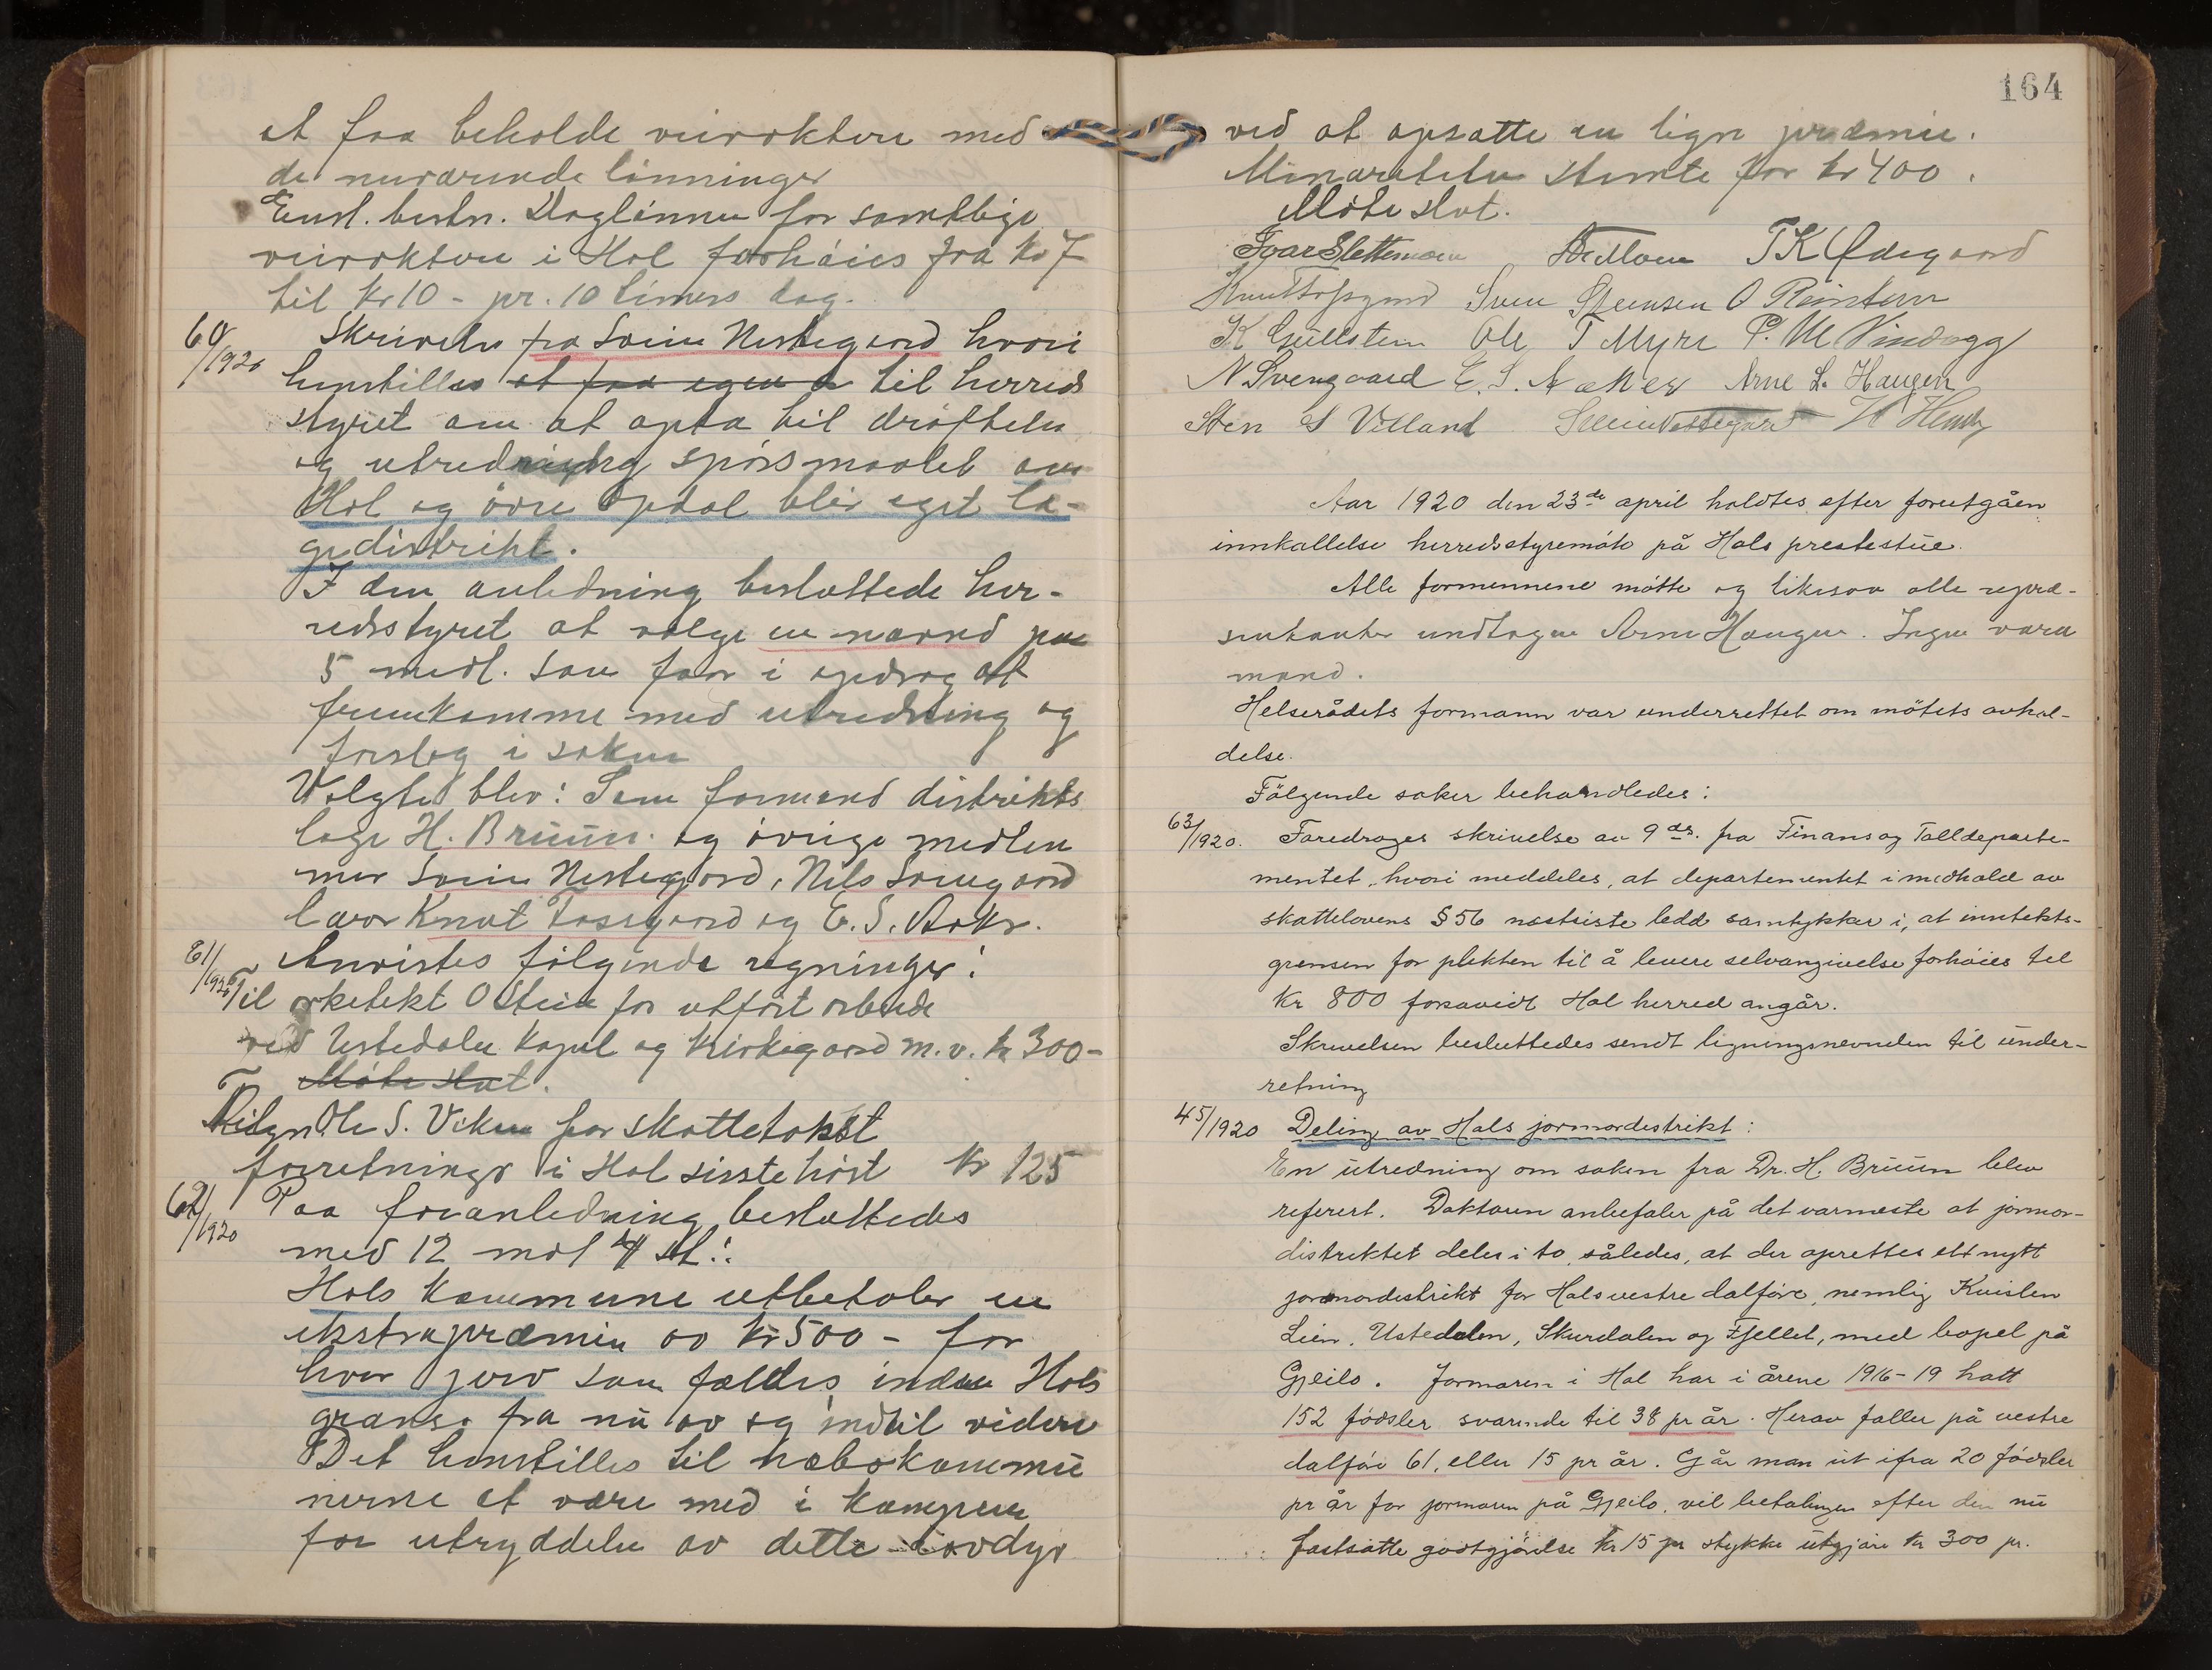 at faa beholde veivoktere med
de nuværende lönninger
Enst. besln. Daglönnen for samtlige
veivoktere i Hol forhöies fra kr 7
til kr 10 - pr. 10 timers dag.
60/1920 Skrivelse fra Svein Nestegard hvori
henstilles at faa egen d til herreds
styret om at opta til dröftelse
og utredning spörsmaalet om
Hol og övre Opdal blir eget læ-
gedistrikt.
I den anledning besluttede her-
redsstyret at vælge en nævnd paa
5 medl. som faar i opdrag at
fremkomme med utredning og
forslag i saken
Valgte blev: Som formand distrikts
læge H. Bruun og övrige medlem
mer Svein Nestegard, Nils Svengaard
lærer Knut Tossegaard og E. S. Aaker.
61/1920 Anvistes fölgende regninger:
Til arkitekt O Stein for utfört arbeide
ved Ustedalen kapel og kirkegaard m.v. kr 300-
Möte slut.
Til Ole S. Viken for skattetakst
forretninger i Hol sisste höst kr 125
62/1920 Paa foranledning besluttedes
med 12 mot 4 st.:
Hols kommune utbetaler en
ekstrapræmie av kr 500 - for
hver jerv som fældes inden Hols
grænser fra nu av og indtil videre
Det henstilles til nabokommu
nerne at være med i kampen
for utryddelse av dette rovdyr
164
ved at opsætte en lign præmie.
Minoriteten stemte for kr 400.
Möte slut.
Ivar Slettemoen T K Ødegaard
Knut Tossgard Sven Steensen O Reinton
K Gullsten Ole T Myre P. M Vindegg
N Svengaard E. S. Aaker Arne L. Haugen
Sten S Villand Svein Nestegard
Aar 1920 den 23de april holdtes efter forutgåen
innkallelse herredsstyremöte på Hols prestestue.
Alle formennene mötte og likesaa alle repræ-
sentanter undtagen Arne Haugen. Ingen vara
mand.
Helserådets formann var underrettet om mötets avhol-
delse.
Fölgende saker behandledes:
63/1920. Foredroges skrivelse av 9ds. fra Finans og Tolldeparte-
mentet, hvori meddeles, at departementet i medhold av
skattelovens § 56 nestsiste ledd samtykker i, at inntekts-
grensen for plikten til å levere selvangivelse forhöies til
kr 800 forsavidt Hol herred angår.
Skrivelsen besluttedes sendt ligningsnevnden til under-
retning
45/1920 Deling av Hols jormordistrikt:
En utredning om saken fra Dr. H. Bruun blev
referert. Doktoren anbefaler på det varmeste at jormor-
distriktet deles i to, således, at der oprettes ett nytt
jormordistrikt for Hols vestre dalföre, nemlig Kvislen
Lien, Ustedalen, Skurdalen og Fjellet, med bopel på
Gjeilo. Jormoren i Hol har i årene 1916-19 hatt
152 födsler svarende til 38 pr år. Herav faller på vestre
dalföre 61, eller 15 pr år. Går man ut ifra 20 födsler
pr år for jormoren på Gjeilo, vil betalingen efter den nu
fastsatte godtgjörelse kr 15 pr stykke utgjöre kr 300 pr.